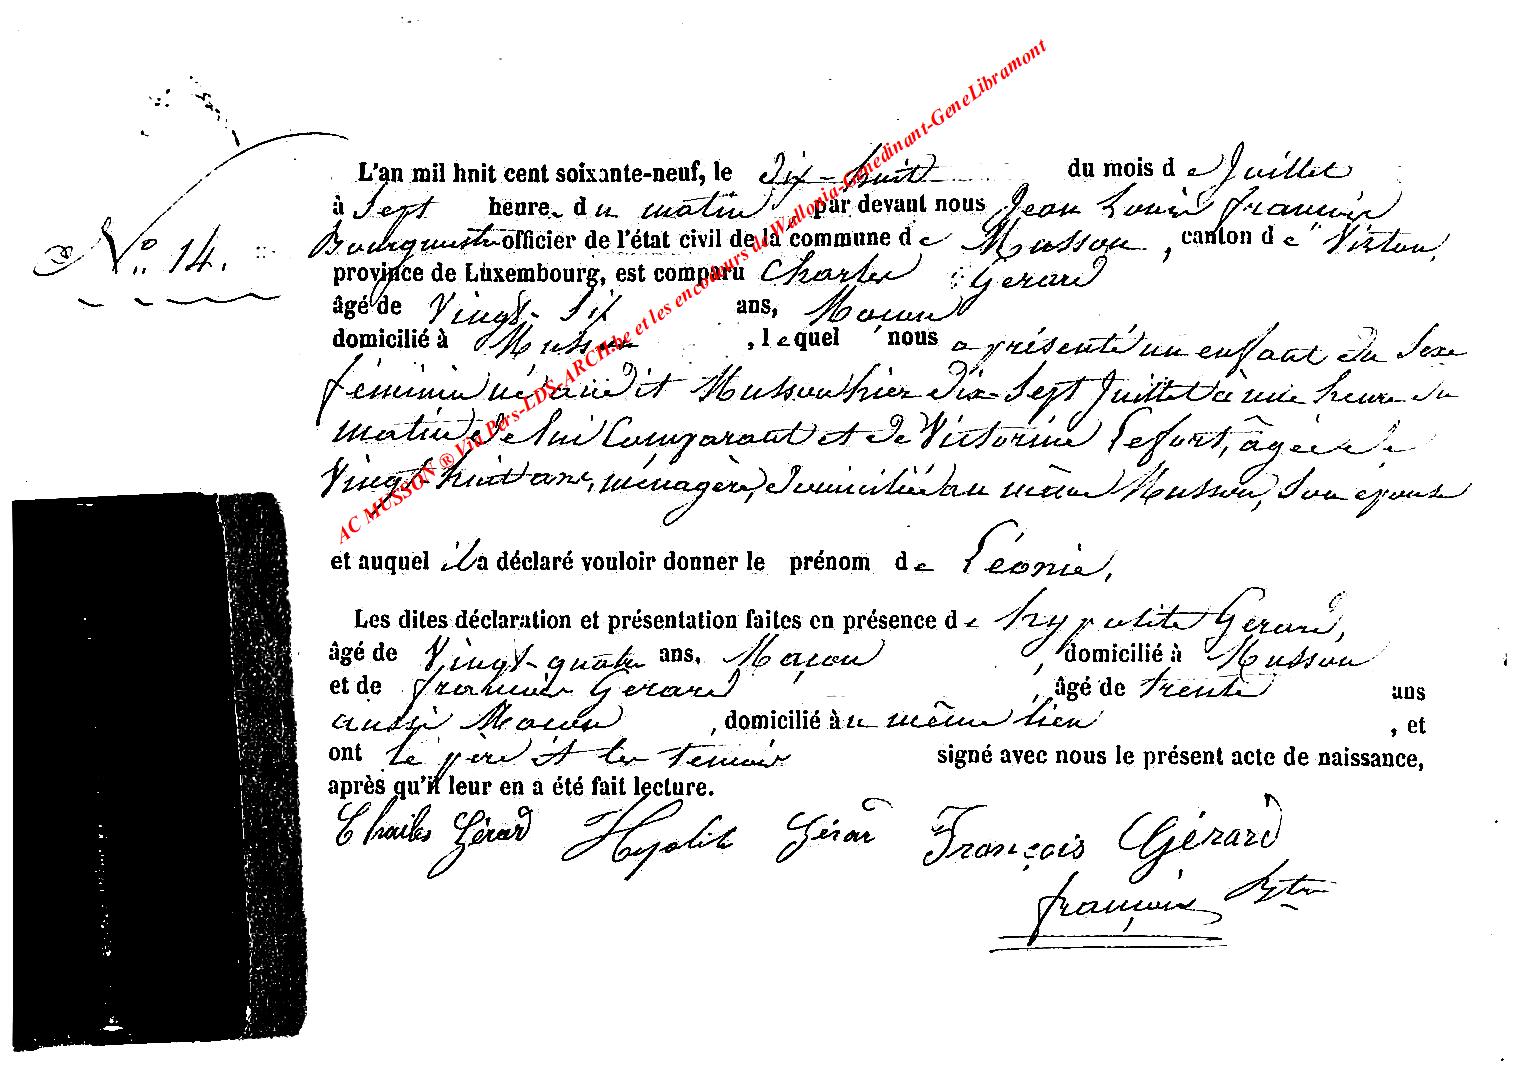 L'an mil huit cent soixante-neuf, le dix-huit du mois de Juillet
à Sept heure du matin, par devant nous Jean Louis françois
Bourgmestre officier de l'état civil de la commune de Musson, canton de Virton,
N° 14.
province de Luxembourg, est comparu Charles Gerard
âgé de Vingt-Six ans, Maçon
domicilié à Musson, lequel nous a présenté un enfant du Sexe
féminin né audit Musson hier dix-Sept Juillet à une heure du
matin de lui Comparant et de Victorine Lefort, âgée de
Vingt huit ans, ménagère, domiciliée au même Musson, Son épouse
et auquel il a déclaré vouloir donner le prénom de Léonie.
Les dites déclaration et présentation faites en présence de hypolite Gérard,
âgé de Vingt-quatre ans, Maçon, domicilié à Musson
et de françois Gerard, âgé de trente ans
aussi Maçon, domicilié au même lieu, et
ont le père et les témoins signé avec nous le présent acte de naissance,
après qu'il leur en a été fait lecture.
Charles Gérard Hypolite Gérard François Gérard
françois Bgtre
AC MUSSON ® Via Pers-LDS-ARCH.be et les encodeurs de Wallonia-Genedinant-GeneLibramont